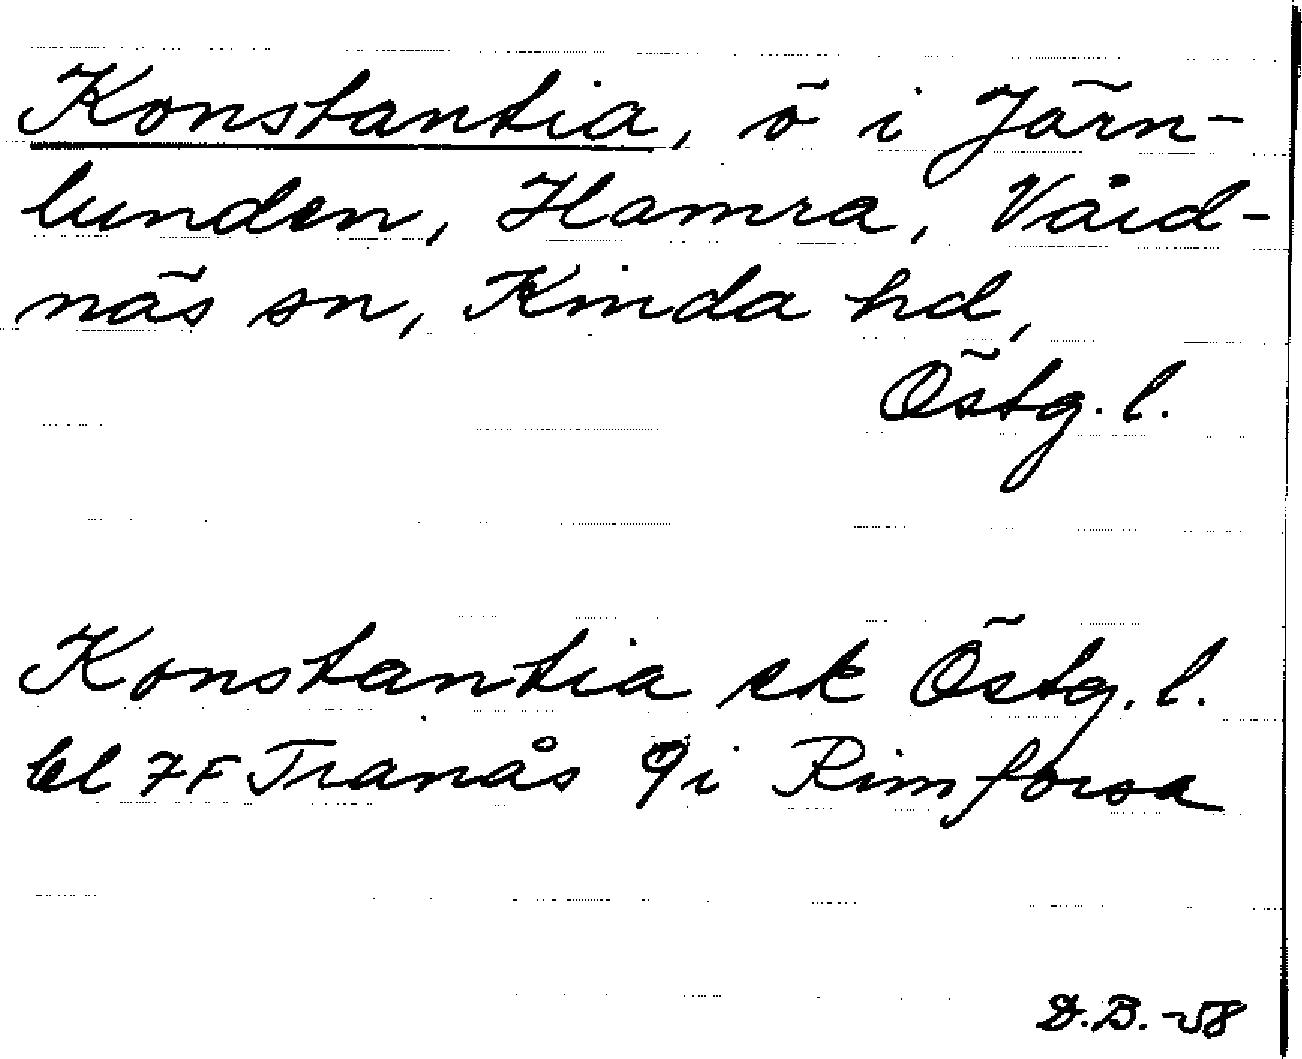 Konstantia, ö i Järn-
lunden, Hamra, Vård-
näs sn, Kinda hd,
Östg. l.
Konstantia ek Östg. l.
bl 7F Tranås 9i Rimforsa
D.B. -58